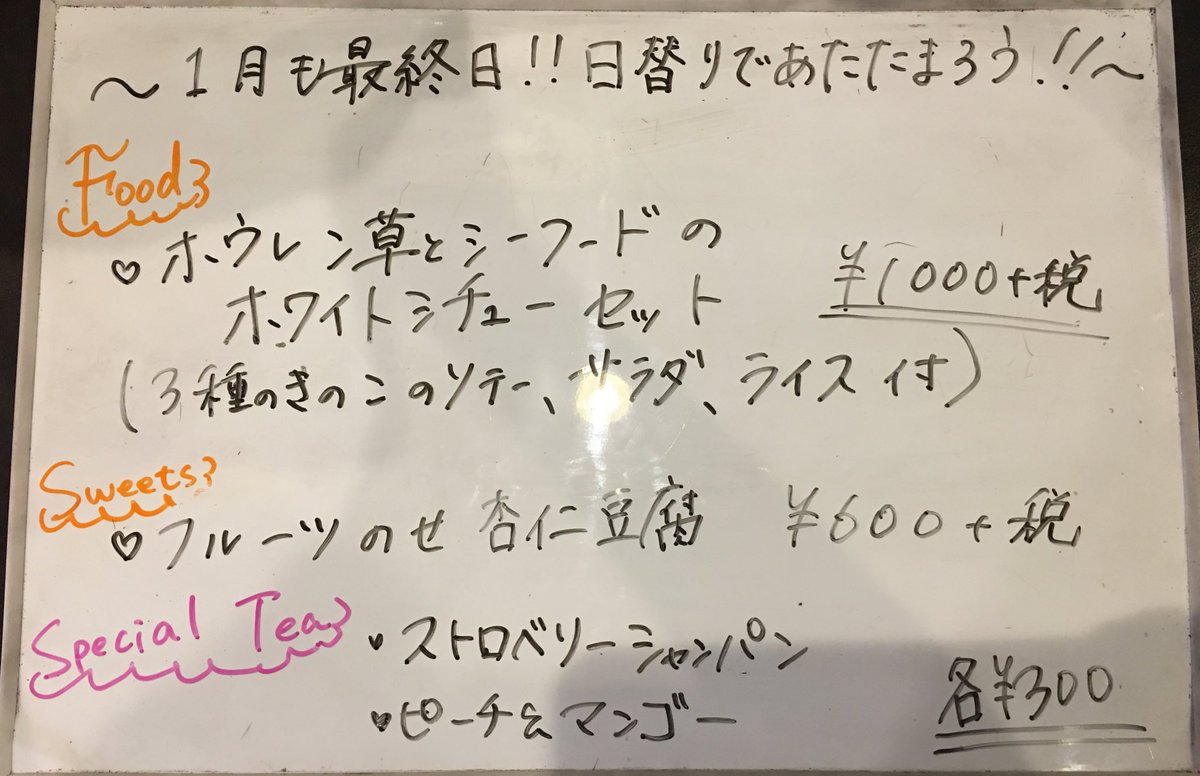 ～1月も最終日!!日替りであたたまろう!!～
Food
♡ホウレン草とシーフードの
ホワイトシチューセット ¥1000+税
(3種のきのこのソテー、サラダ、ライス付)
Sweets
♡フルーツのせ杏仁豆腐 ¥600+税
Special Tea
・ストロベリーシャンパン
・ピーチ&マンゴー
各¥300